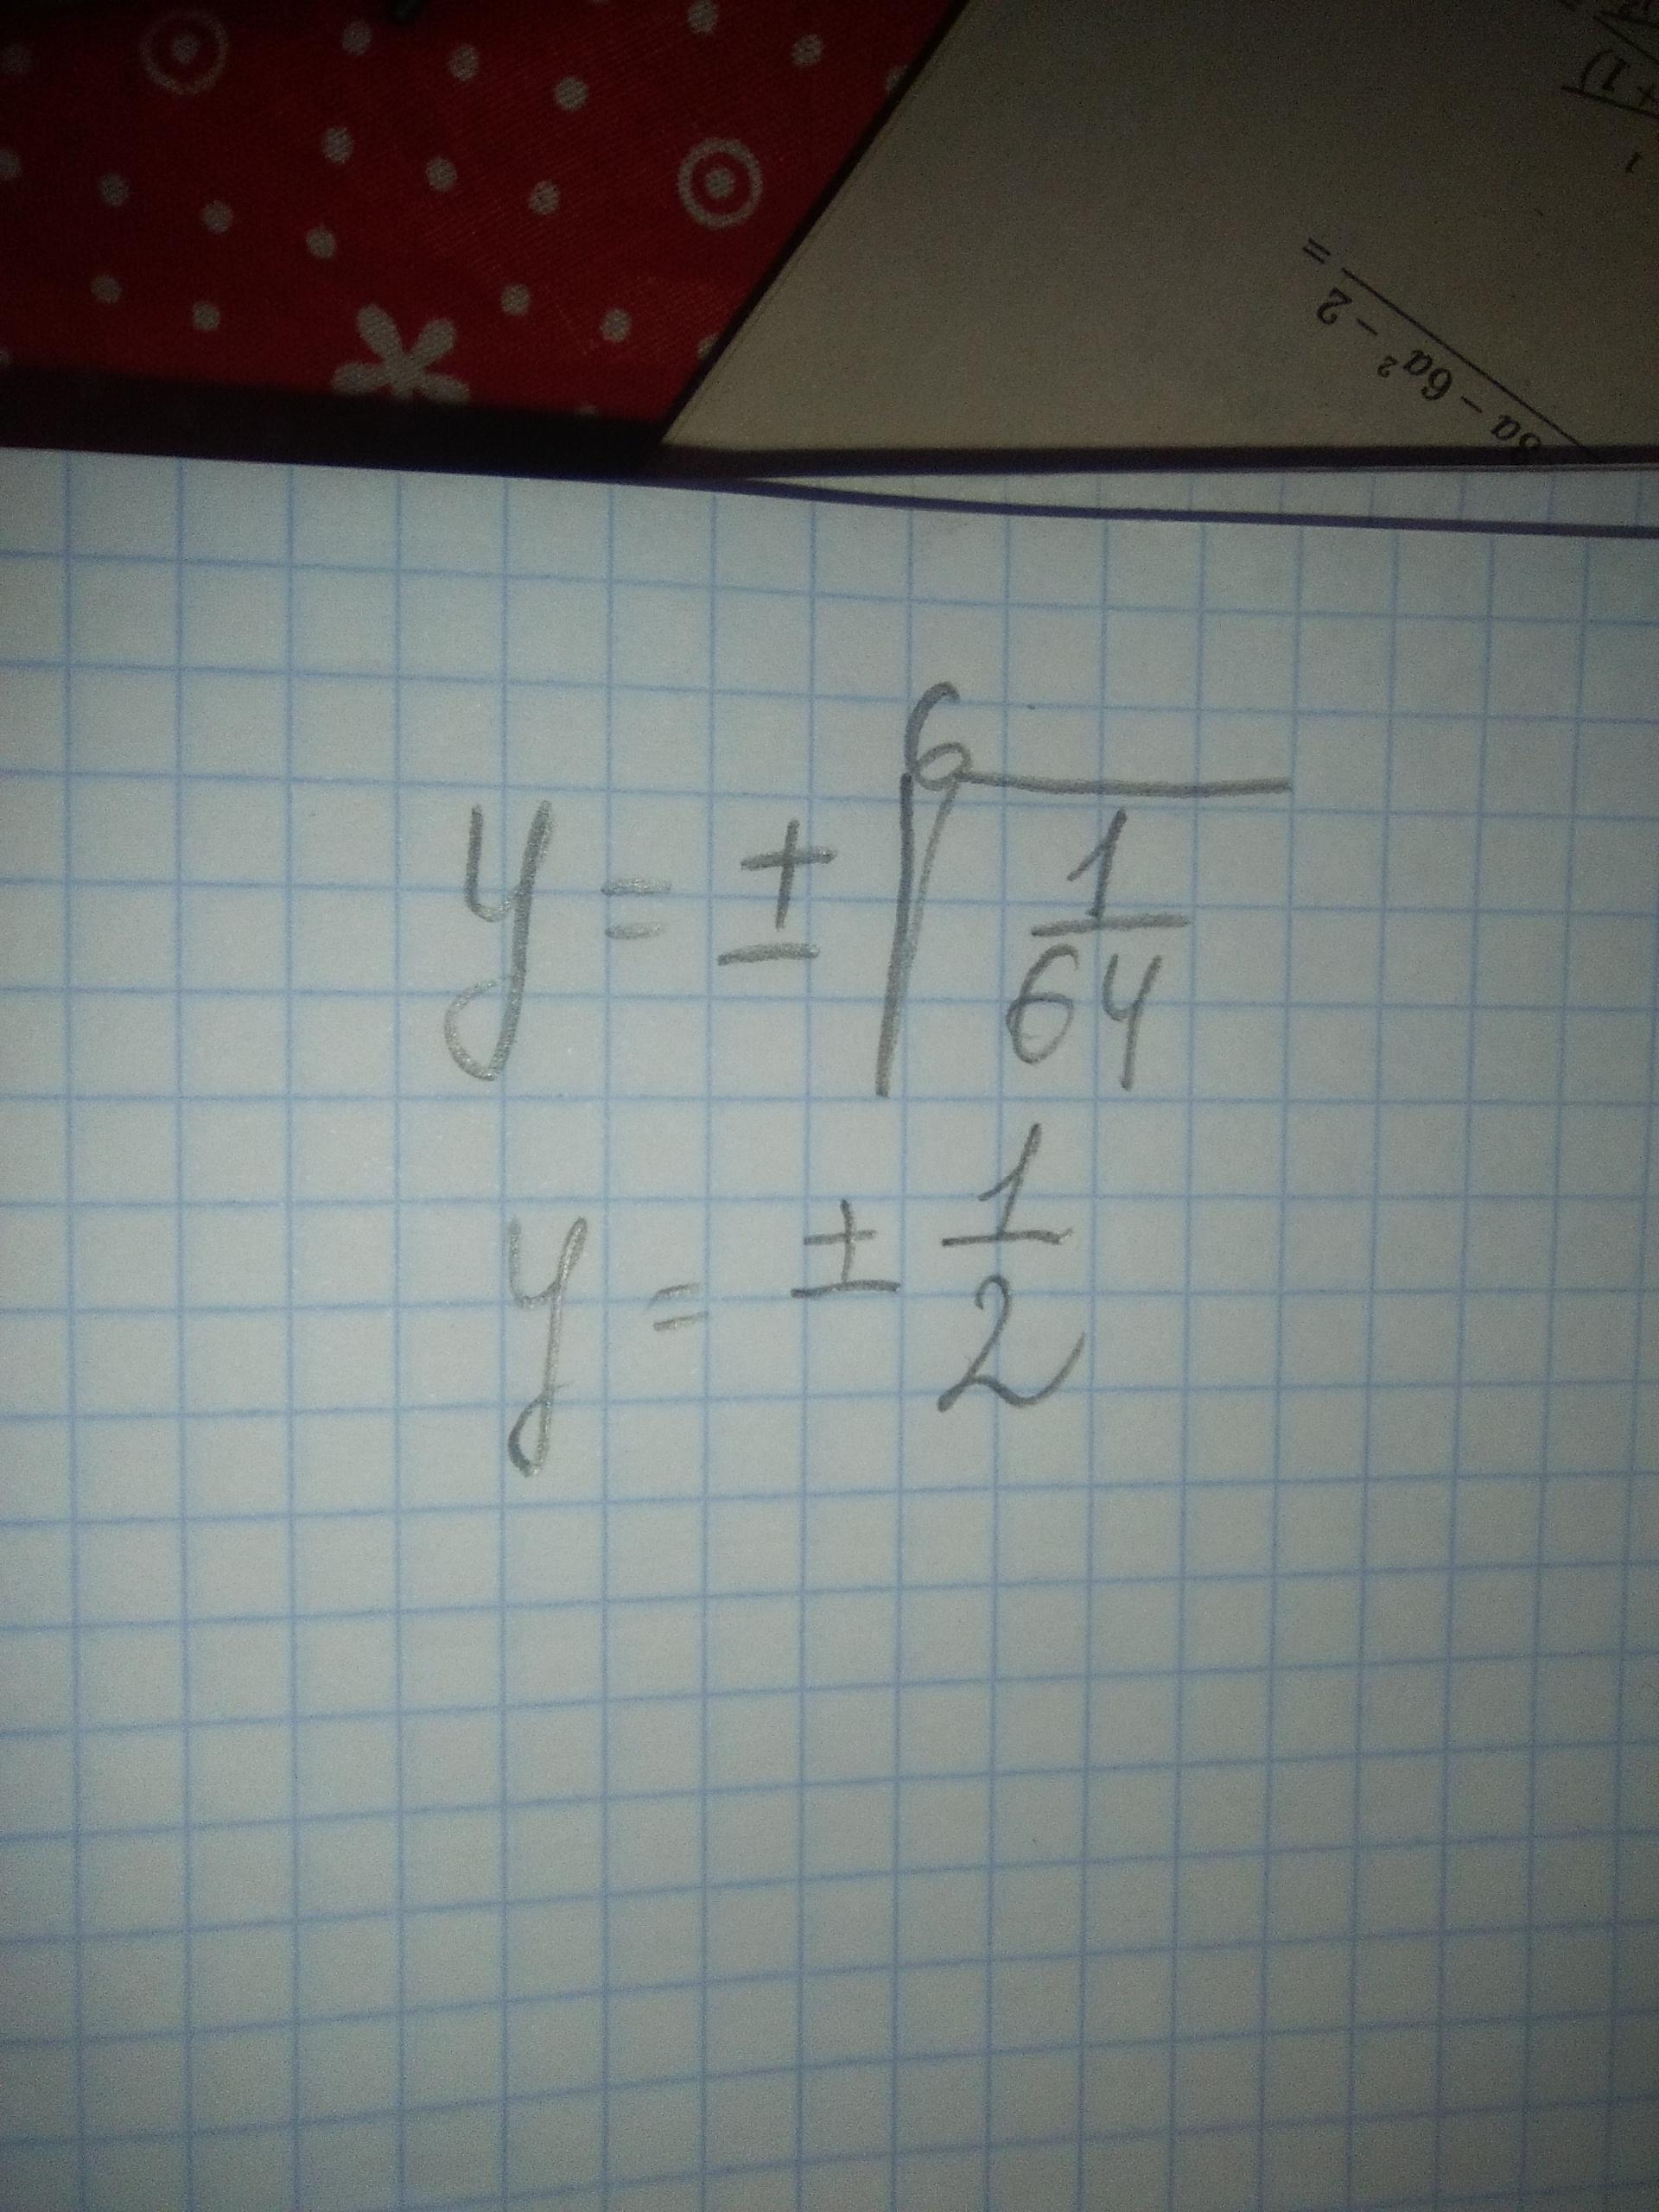 8a − 6a² − 2 =
y = ± ⁶√(1/64)
y = ± 1/2